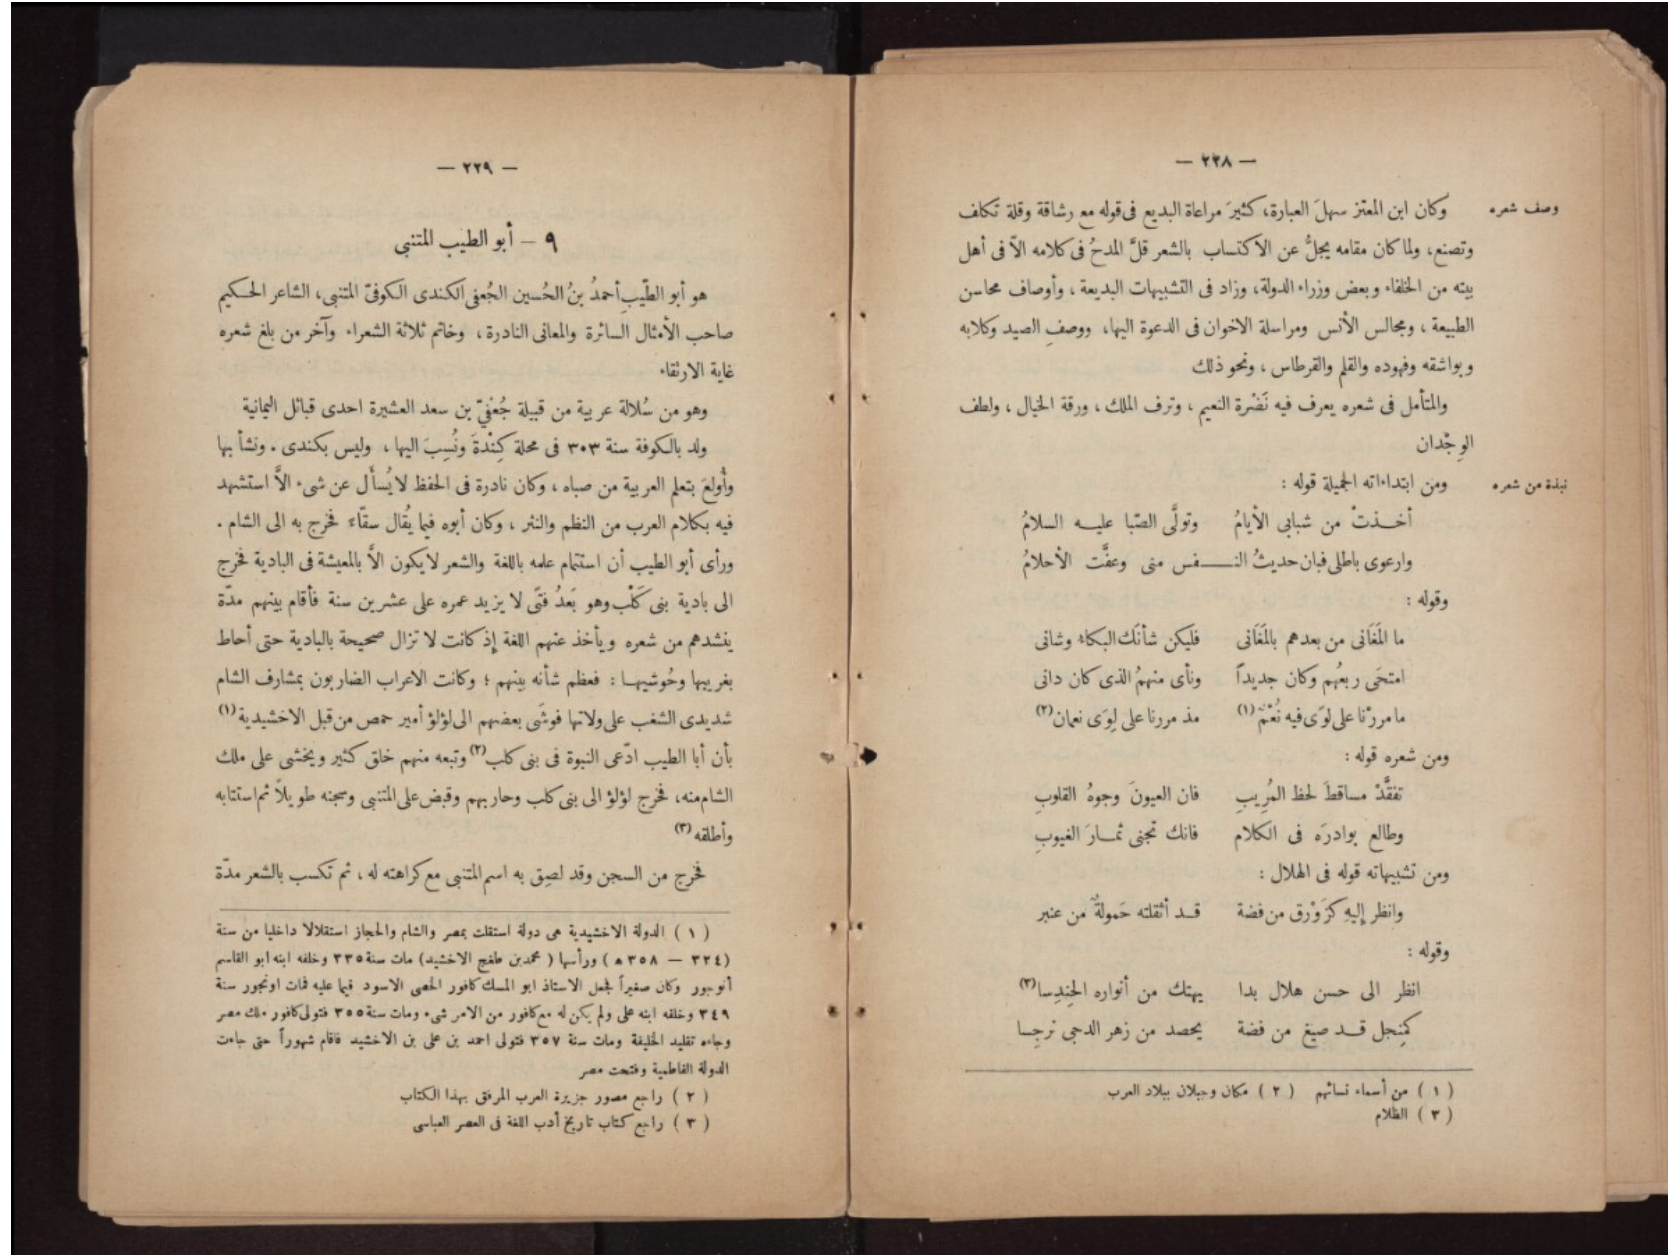 — ٢٢٨ —
وصف شعره
وكان ابن المعتز سهلَ العبارة، كثيرَ مراعاة البديع فى قوله مع رشاقة وقلة تكلف
وتصنع، ولما كان مقامه يجلُّ عن الاكتساب بالشعر قلَّ المدحُ فى كلامه الاّ فى أهل
بيته من الخلفاء وبعض وزراء الدولة، وزاد فى التشبيهات البديعة، وأوصاف محاسن
الطبيعة، ومجالس الأنس ومراسلة الاخوان فى الدعوة اليها، ووصفِ الصيد وكلابه
وبواشقه وفهوده والقلم والقرطاس، ونحو ذلك
والمتأمل فى شعره يعرف فيه نَضْرة النعيم، وترف الملك، ورقة الخيال، ولطف
الوِجْدان
نبذة من شعره
ومن ابتداءاته الجميلة قوله :
أخــذتْ من شبابى الأيامُ وتولَّى الصّبا عليــه السلامُ
وارعوى باطلى فبان حديثُ النــــفس منى وعفَّت الأحلامُ
وقوله :
ما المَغَانى من بعدهم بالمَغَانى فليكن شأنَك البكاءُ وشانى
امتحَى ربعُهم وكان جديداً ونأى منهمُ الذى كان دانى
ما مررْنا على لوَى فيه نُعْمٌ (١) مذ مررنا على لِوَى نعمان (٢)
ومن شعره قوله :
تفقَّدْ مساقطَ لحظ المُرِيبِ فان العيونَ وجوهُ القلوبِ
وطالع بوادرَه فى الكلام فانك تجنى ثمــارَ الغيوبِ
ومن تشبيهاته قوله فى الهلال :
وانظر إليهِ كزَوْرق من فضة قــد أثقلته حَمولةٌ من عنبر
وقوله :
انظر الى حسن هلال بدا يهتك من أنواره الحِندِسا (٣)
كمِنجل قــد صيغ من فضة يحصد من زهر الدجى نرجِسا
( ١ ) من أسماء نسائهم ( ٢ ) مكان وجبلان ببلاد العرب
( ٣ ) الظلام
— ٢٢٩ —
٩ – أبو الطيب المتنبى
هو أبو الطّيبِ أحمدُ بنُ الحُسين الجُعفى الكندى الكوفىّ المتنبى، الشاعر الحكيم
صاحب الأمثال السائرة والمعانى النادرة، وخاتم ثلاثة الشعراء وآخر من بلغ شعره
غاية الارتقاء
وهو من سُلالة عربية من قبيلة جُعْفِيّ بن سعد العشيرة احدى قبائل اليمانية
ولد بالكوفة سنة ٣٠٣ فى محلة كِنْدةَ ونُسِبَ اليها، وليس بكندى. ونشأ بها
وأُولعَ بتعلم العربية من صباه، وكان نادرة فى الحفظ لا يُسأَل عن شىء الاَّ استشهد
فيه بكلام العرب من النظم والنثر، وكان أبوه فيما يُقال سقّاءً فخرج به الى الشام.
ورأى أبو الطيب أن استتمام علمه باللغة والشعر لا يكون الاَّ بالمعيشة فى البادية فخرج
الى بادية بنى كَلْب وهو بَعدُ فتًى لا يزيد عمره على عشرين سنة فأقام بينهم مدّة
ينشدهم من شعره ويأخذ عنهم اللغة إِذ كانت لا تزال صحيحة بالبادية حتى أحاط
بغريبها وحُوشيهــا : فعظم شأنه بينهم ؛ وكانت الاعراب الضاربون بمشارف الشام
شديدى الشغب على ولاتها فوشَى بعضهم الى لؤلؤ أمير حمص من قبل الاخشيدية (١)
بأن أبا الطيب ادّعى النبوة فى بنى كلب (٢) وتبعه منهم خلق كثير ويخشى على ملك
الشام منه، فخرج لؤلؤ الى بنى كلب وحاربهم وقبض على المتنبى وسجنه طويلاً ثم استتابه
وأطلقه (٣)
فخرج من السجن وقد لصِق به اسم المتنبى مع كراهته له، ثم تكسب بالشعر مدّة
( ١ ) الدولة الاخشيدية هى دولة استقلت بمصر والشام والحجاز استقلالا داخليا من سنة
(٣٢٤ — ٣٥٨ ه) ورأسها ( محمد بن طغج الاخشيد) مات سنة ٣٣٥ وخلفه ابنه ابو القاسم
أنوجور وكان صغيراً فجعل الاستاذ ابو المسك كافور الخصى الاسود قيما عليه فمات اونجور سنة
٣٤٩ وخلفه ابنه على ولم يكن له مع كافور من الامر شىء ومات سنة ٣٥٥ فتولى كافور ملك مصر
وجاءه تقليد الخليفة ومات سنة ٣٥٧ فتولى احمد بن على بن الاخشيد فاقام شهوراً حتى جاءت
الدولة الفاطمية وفتحت مصر
( ٢ ) راجع مصور جزيرة العرب المرفق بهذا الكتاب
( ٣ ) راجع كتاب تاريخ أدب اللغة فى العصر العباسى